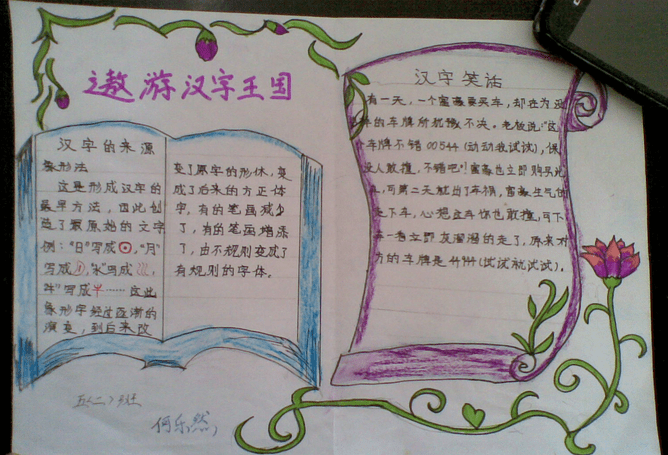 遨游汉字王国
汉字的来源
象形法
这是形成汉字的
最早方法，因此创
造了最原始的文字
例："日"写成⊙，"月"
写成，"水"写成，
"牛"写成……这些
象形字经过逐渐的
演变，到后来改
变了原字的形体，变
成了后来的方正体
字，有的笔画减少
了，有的笔画增添
了，由不规则变成了
有规则的字体。
汉字笑话
有一天，一个富豪要买车，却在为
的车牌所犹豫不决。老板说："这
车牌不错00544（动动我试试），保
没人敢撞，不错吧！"富豪也立即购买
，可第二天就出了车祸，富豪生气
走下车，心想这车你也敢撞，可下
一看立即灰溜溜的走了，原来对
方的车牌是4494（试试就试试）。
五（二）班
何乐然